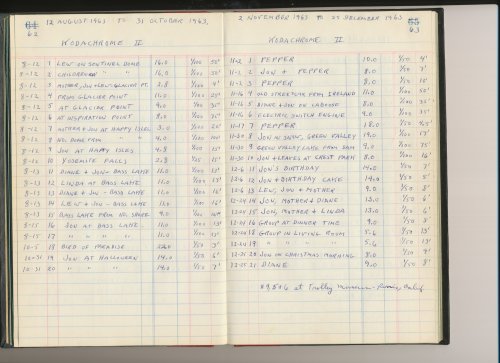 61
62
12 AUGUST 1963 TO 31 OCTOBER 1963
KODACHROME II
8-12 1 LEW ON SENTINEL DOME 16.0 1/100 50'
8-12 2 CHILDREN " " 16.0 1/100
8-12 3 MOTHER, JON + LEW - GLACIER PT. 2.8 1/100 4'
8-12 4 FROM GLACIER POINT 11.0 1/100
8-12 5 AT GLACIER POINT 9.0 1/100
8-12 6 AT INSPIRATION POINT 8.0 1/100
8-12 7 MOTHER + JON AT HAPPY ISLES 3.0
8-12 8 NO. DOME FROM " " 4.0
8-12 9 JON AT HAPPY ISLES 4.8
8-12 10 YOSEMITE FALLS 2.8 15'
8-13 11 DIANE + JON - BASS LAKE 11.0 1/100 13'
8-13 12 LINDA AT BASS LAKE 11.0 1/100 13'
8-13 13 DIANE + JON - BASS LAKE 11.0 1/100 16'
8-13 14 LEW + JON - BASS LAKE 11.0 1/100 16'
8-13 15 BASS LAKE FROM NO. SHORE 9.0 1/100
8-15 16 JON AT BASS LAKE 11.0 1/100 13'
8-15 17 " " " " 11.0 1/100 13'
10-5 18 BIRD OF PARADISE 22.0 1/50 3'
10-31 19 JON AT HALLOWEEN 14.0 1/50 6'
10-31 20 " " " 14.0 1/50 7'
63
2 NOVEMBER 1963 TO 25 DECEMBER 1963
KODACHROME II
11-2 1 PEPPER 10.0 1/50 4'
11-2 2 JON + PEPPER 8.0 1/50 7'
11-2 3 PEPPER 8.0 1/50 10'
11-16 4 OLD STREETCAR FROM IRELAND 11.0 1/100 50'
11-16 5 DIANE + JON ON CABOOSE 8.0 1/100
11-16 6 ELECTRIC SWITCH ENGINE 9.0 1/100
11-17 7 PEPPER 18.0 1/50
11-30 8 JON IN SNOW, GREEN VALLEY 19.0 1/100 13'
11-30 9 GREEN VALLEY LAKE FROM DAM 9.0 1/100
11-30 10 JON + LEAVES AT CREST PARK 8.0 1/100
12-6 11 JON'S BIRTHDAY 14.0 1/50 7'
12-6 12 JON + BIRTHDAY CAKE 14.0 1/50 5'
12-6 13 LEW, JON + MOTHER 9.0 1/50 8'
12-24 14 JON, MOTHER + DIANE 13.0 1/50 6'
12-24 15 JON, MOTHER + LINDA 13.0 1/50 6'
12-24 16 GROUP AT DINNER TIME 9.0 1/50
12-24 18 GROUP IN LIVING ROOM 5.6 1/50 13'
12-24 19 " " " " 5.6 1/50 13'
12-25 20 JON ON CHRISTMAS MORNING 8.0 1/50 9'
12-25 21 DIANE 9.0 1/50 8'
at Trolley Museum - Perris, Calif.